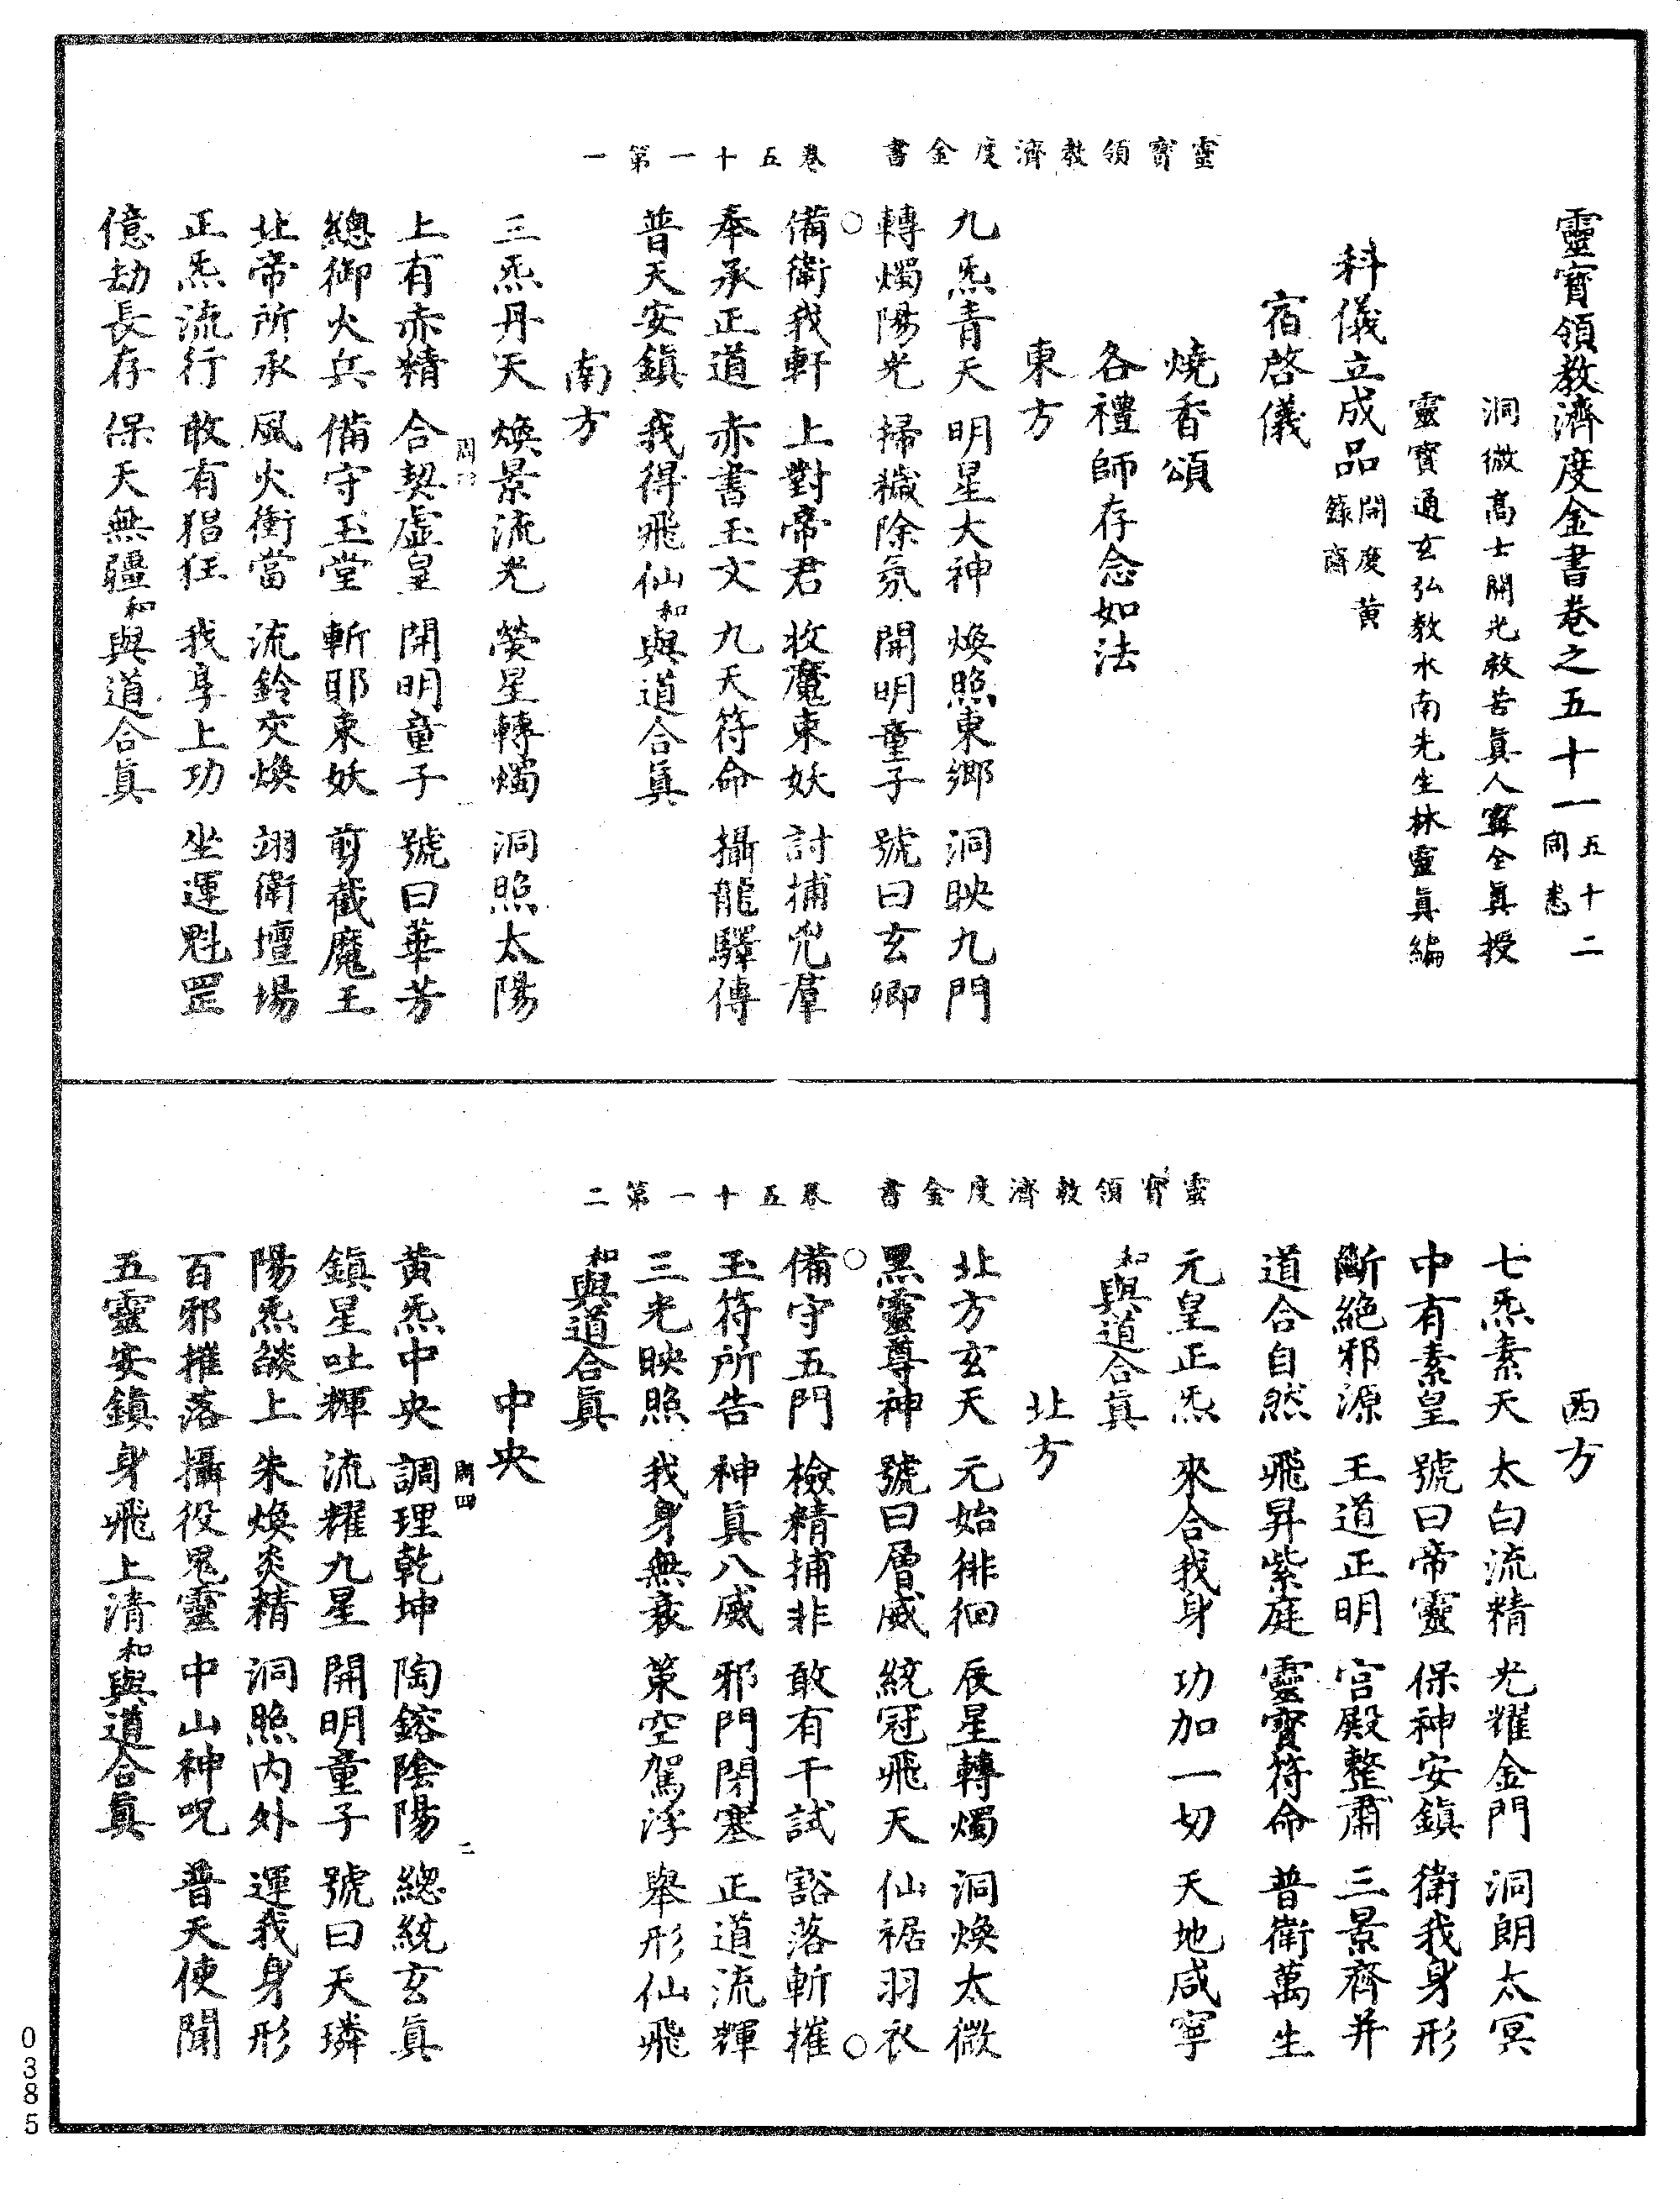 靈寶領教濟度金書卷之五十一 五十二同卷
洞微高士開光救苦眞人寗全眞授
靈寶通玄弘教水南先生林靈眞編
科儀立成品 開度黃籙齋
宿啓儀
燒香頌
各禮師存念如法
東方
九炁青天 明星大神 煥照東鄉 洞映九門
轉燭陽光 掃穢除氛 開明童子 號曰玄卿
靈寶領教濟度金書 卷五十一第一
備衛我軒 上對帝君 收魔束妖 討捕兇羣
奉承正道 赤書玉文 九天符命 攝龍驛傳
普天安鎮 我得飛仙 和 與道合眞
南方
三炁丹天 煥景流光 熒星轉燭 洞照太陽
上有赤精 合契虛皇 開明童子 號曰華芳
總御火兵 備守玉堂 斬耶束妖 剪截魔王
北帝所承 風火衝當 流鈴交煥 翊衛壇場
正炁流行 敢有猖狂 我享上功 坐運魁罡
億劫長存 保天無疆 和 與道合眞
西方
七炁素天 太白流精 光耀金門 洞朗太冥
中有素皇 號曰帝靈 保神安鎮 衛我身形
斷絕邪源 王道正明 宫殿整肅 三景齊并
道合自然 飛昇紫庭 靈寶符命 普衛萬生
元皇正炁 來合我身 功加一切 天地咸寧
和 與道合眞
北方
北方玄天 元始徘徊 辰星轉燭 洞煥太微
黑靈尊神 號曰層威 統冠飛天 仙裾羽衣
靈寶領教濟度金書 卷五十一第二
備守五門 檢精捕非 敢有干試 豁落斬摧
玉符所告 神眞八威 邪門閉塞 正道流輝
三光映照 我身無衰 策空駕浮 舉形仙飛
和 與道合眞
中央
黃炁中央 調理乾坤 陶鎔陰陽 總統玄眞
鎮星吐輝 流耀九星 開明童子 號曰天璘
陽炁燄上 朱煥炎精 洞照内外 運我身形
百邪摧落 攝役鬼靈 中山神呪 普天使聞
五靈安鎮 身飛上清 和 與道合眞
0385